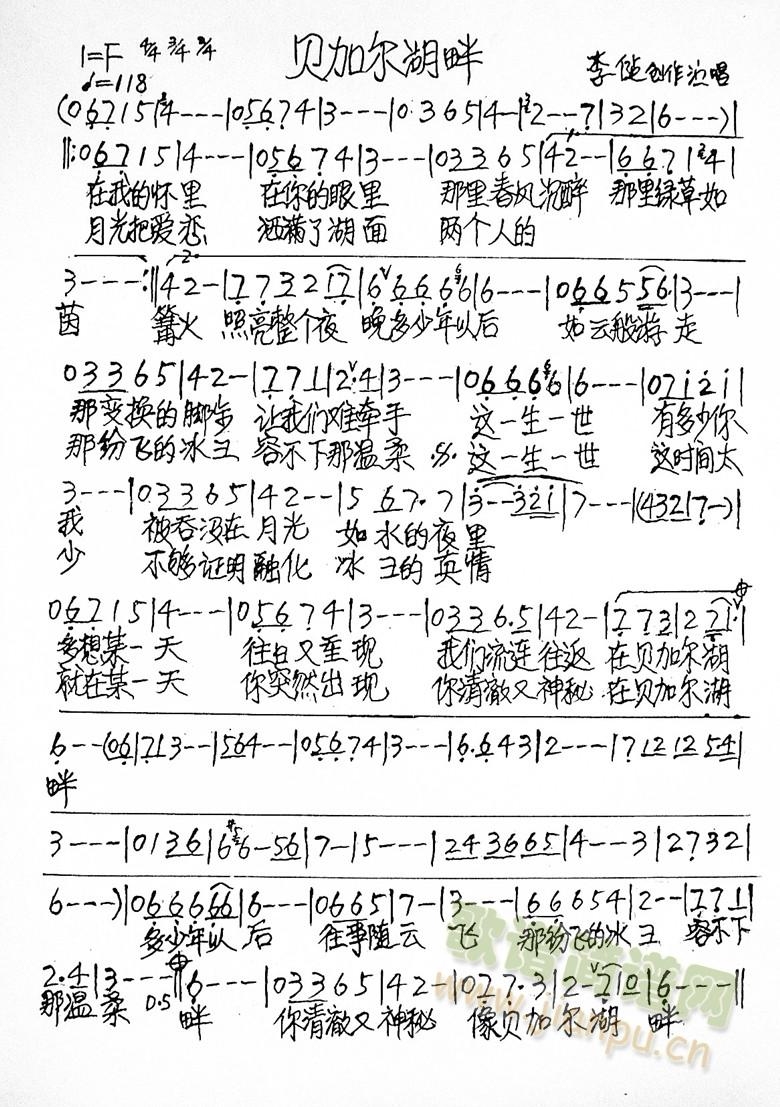 贝加尔湖畔
1=F 4/4 3/4 2/4
♩=118
李健创作演唱
(0 6 7 1 5 | 4 - - - | 0 5 6 7 4 | 3 - - - | 0 3 6 5 | 4 - | 2 - - 7 | 3 2 | 6 - - - ) |
‖: 0 6 7 1 5 | 4 - - - | 0 5 6 7 4 | 3 - - - | 0 3 3 6 5 | 4 2 - - | 6 6 7 | 4 |
在我的怀里 在你的眼里 那里春风沉醉 那里绿草如
月光把爱恋 洒满了湖面 两个人的
3 - - - :‖ 4 2 - | 7 7 3 2 1 7 | 6 6 6 6 6 | 6 - - - | 0 6 6 5 5 6 | 3 - - - |
茵 篝火 照亮整个夜 晚多少年以后 如云般游走
0 3 3 6 5 | 4 2 - | 7 7 1 | 2 · 4 | 3 - - - | 0 6 6 6 6 | 6 - - - | 0 7 1 2 1 |
那变换的脚步 让我们难牵手 这一生一世 有多少你
那纷飞的冰雪 容不下那温柔 这一生一世 这时间太
3 - - - | 0 3 3 6 5 | 4 2 - - | 5 6 7 · 7 | 3 - - 3 2 1 | 7 - - - | (4 3 2 1 7 - ) |
我 被吞没在月光 如水的夜里
少 不够证明融化 冰雪的真情
0 6 7 1 5 | 4 - - - | 0 5 6 7 4 | 3 - - - | 0 3 3 6 · 5 | 4 2 - | 7 7 3 | 2 7 1 · |
多想某一天 往日又重现 我们流连往返 在贝加尔湖
就在某一天 你突然出现 你清澈又神秘 在贝加尔湖
6 - - (0 6 | 7 1 3 - - | 5 6 4 - - | 0 5 6 7 4 | 3 - - - | 6 · 6 4 3 | 2 - - - | 7 1 2 1 2 5 4 |
畔
3 - - - | 0 1 3 6 | 6 6 - 5 6 | 7 - | 5 - - - | 2 4 3 6 6 5 | 4 - - 3 | 2 7 3 2 |
6 - - - ) | 0 6 6 6 6 6 | 6 - - - | 0 6 6 5 | 7 - | 3 - - - | 6 6 6 5 4 | 2 - - | 7 7 1 |
多少年以后 往事随云飞 那纷飞的冰雪 容不下
2 · 4 | 3 - - - ‖ 6 - - - | 0 3 3 6 5 | 4 2 - | 0 7 7 · 3 | 2 - 7 1 0 | 6 - - - ‖
那温柔 D.S 畔 你清澈又神秘 像贝加尔湖畔
歌谱简谱网
www.jianpu.cn